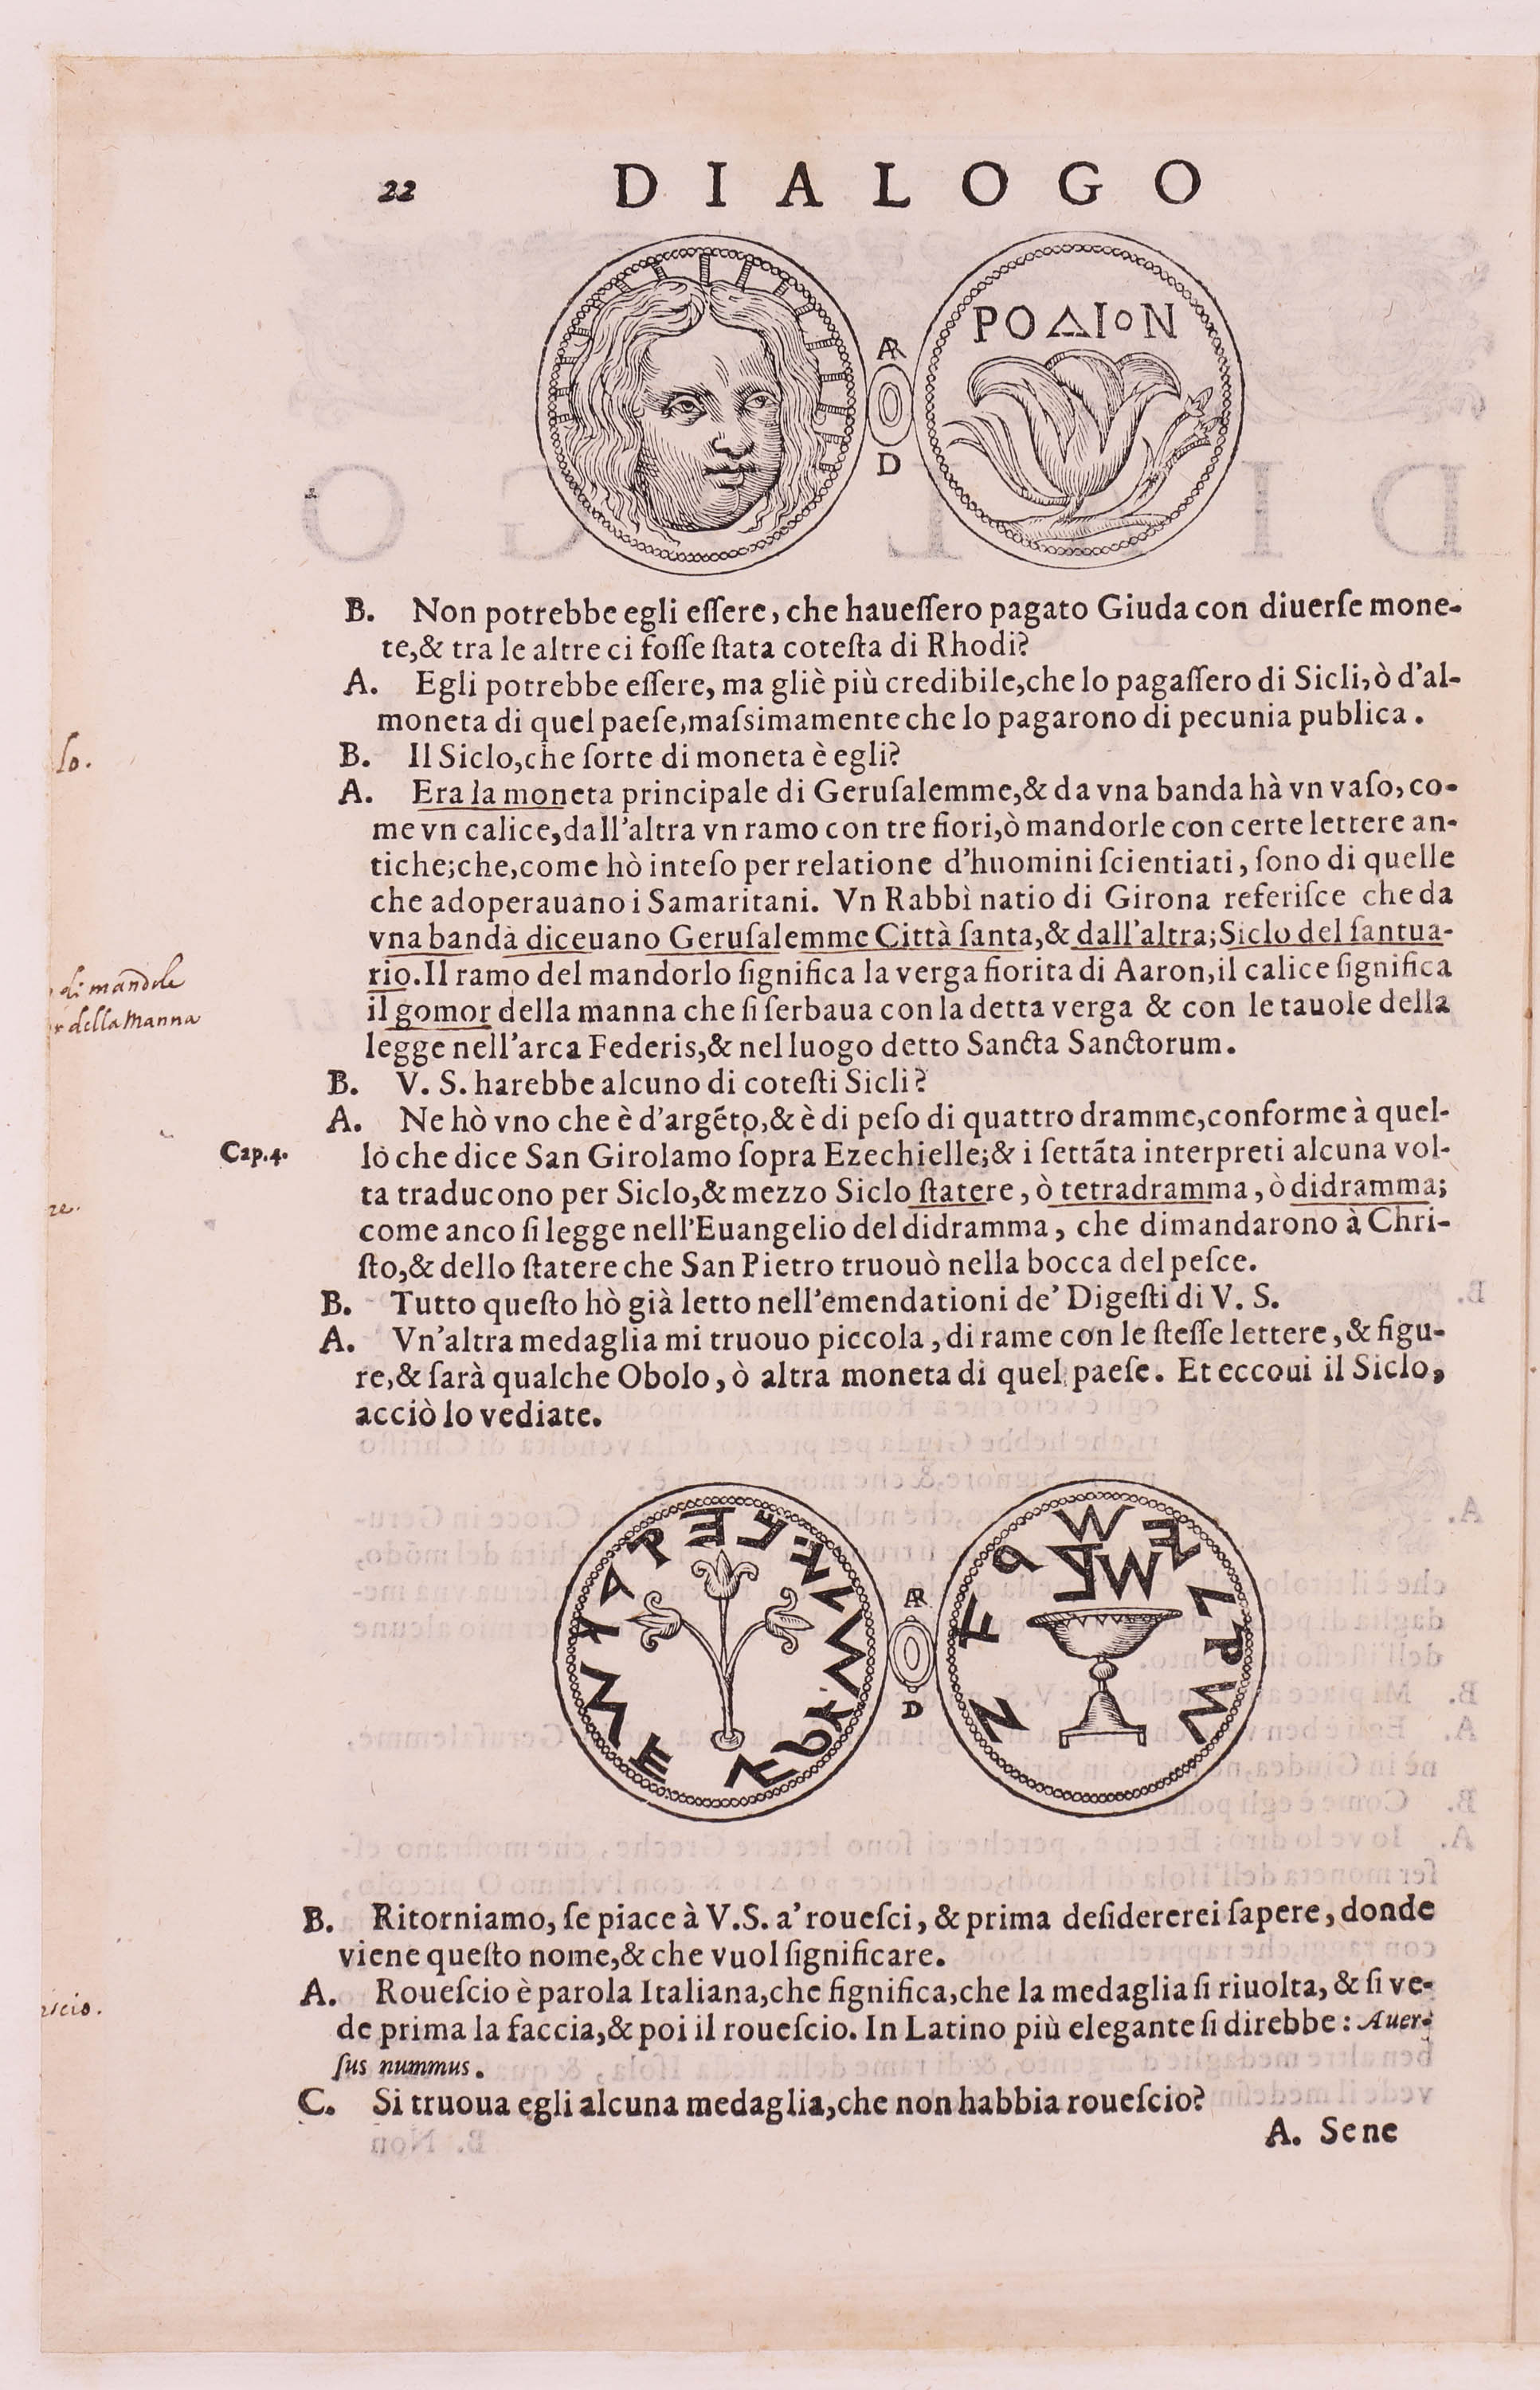 22 DIALOGO
ΡΟΔΙΟΝ
AR
D
B. Non potrebbe egli eſſere, che haueſſero pagato Giuda con diuerſe mone-
te,& tra le altre ci foſſe ſtata coteſta di Rhodi?
A. Egli potrebbe eſſere, ma gliè più credibile,che lo pagaſſero di Sicli,ò d'al-
moneta di quel paeſe,maſsimamente che lo pagarono di pecunia publica.
lo.
B. Il Siclo,che ſorte di moneta è egli?
A. Era la moneta principale di Geruſalemme,& da vna banda hà vn vaſo, co-
me vn calice,dall'altra vn ramo con tre fiori,ò mandorle con certe lettere an-
tiche;che,come hò inteſo per relatione d'huomini ſcientiati, ſono di quelle
che adoperauano i Samaritani. Vn Rabbì natio di Girona referiſce che da
vna banda diceuano Geruſalemme Città ſanta,& dall'altra;Siclo del ſantua-
di mandole
rio.Il ramo del mandorlo ſignifica la verga fiorita di Aaron,il calice ſignifica
della Manna
il gomor della manna che ſi ſerbaua con la detta verga & con le tauole della
legge nell'arca Federis,& nel luogo detto Sancta Sanctorum.
B. V. S. harebbe alcuno di coteſti Sicli?
A. Ne hò vno che è d'argẽto,& è di peſo di quattro dramme,conforme à quel-
Cap.4.
lo che dice San Girolamo ſopra Ezechielle;& i ſettãta interpreti alcuna vol-
ta traducono per Siclo,& mezzo Siclo ſtatere, ò tetradramma, ò didramma;
come anco ſi legge nell'Euangelio del didramma, che dimandarono à Chri-
ſto,& dello ſtatere che San Pietro truouò nella bocca del peſce.
B. Tutto queſto hò già letto nell'emendationi de' Digeſti di V. S.
A. Vn'altra medaglia mi truouo piccola, di rame con le ſteſſe lettere, & figu-
re,& ſarà qualche Obolo, ò altra moneta di quel paeſe. Et eccoui il Siclo,
acciò lo vediate.
AR
D
B. Ritorniamo, ſe piace à V.S. a' roueſci, & prima deſidererei ſapere, donde
viene queſto nome,& che vuol ſignificare.
A. Roueſcio è parola Italiana,che ſignifica,che la medaglia ſi riuolta, & ſi ve-
de prima la faccia,& poi il roueſcio. In Latino più elegante ſi direbbe: Auer-
ſus nummus.
C. Si truoua egli alcuna medaglia,che non habbia roueſcio?
A. Sene